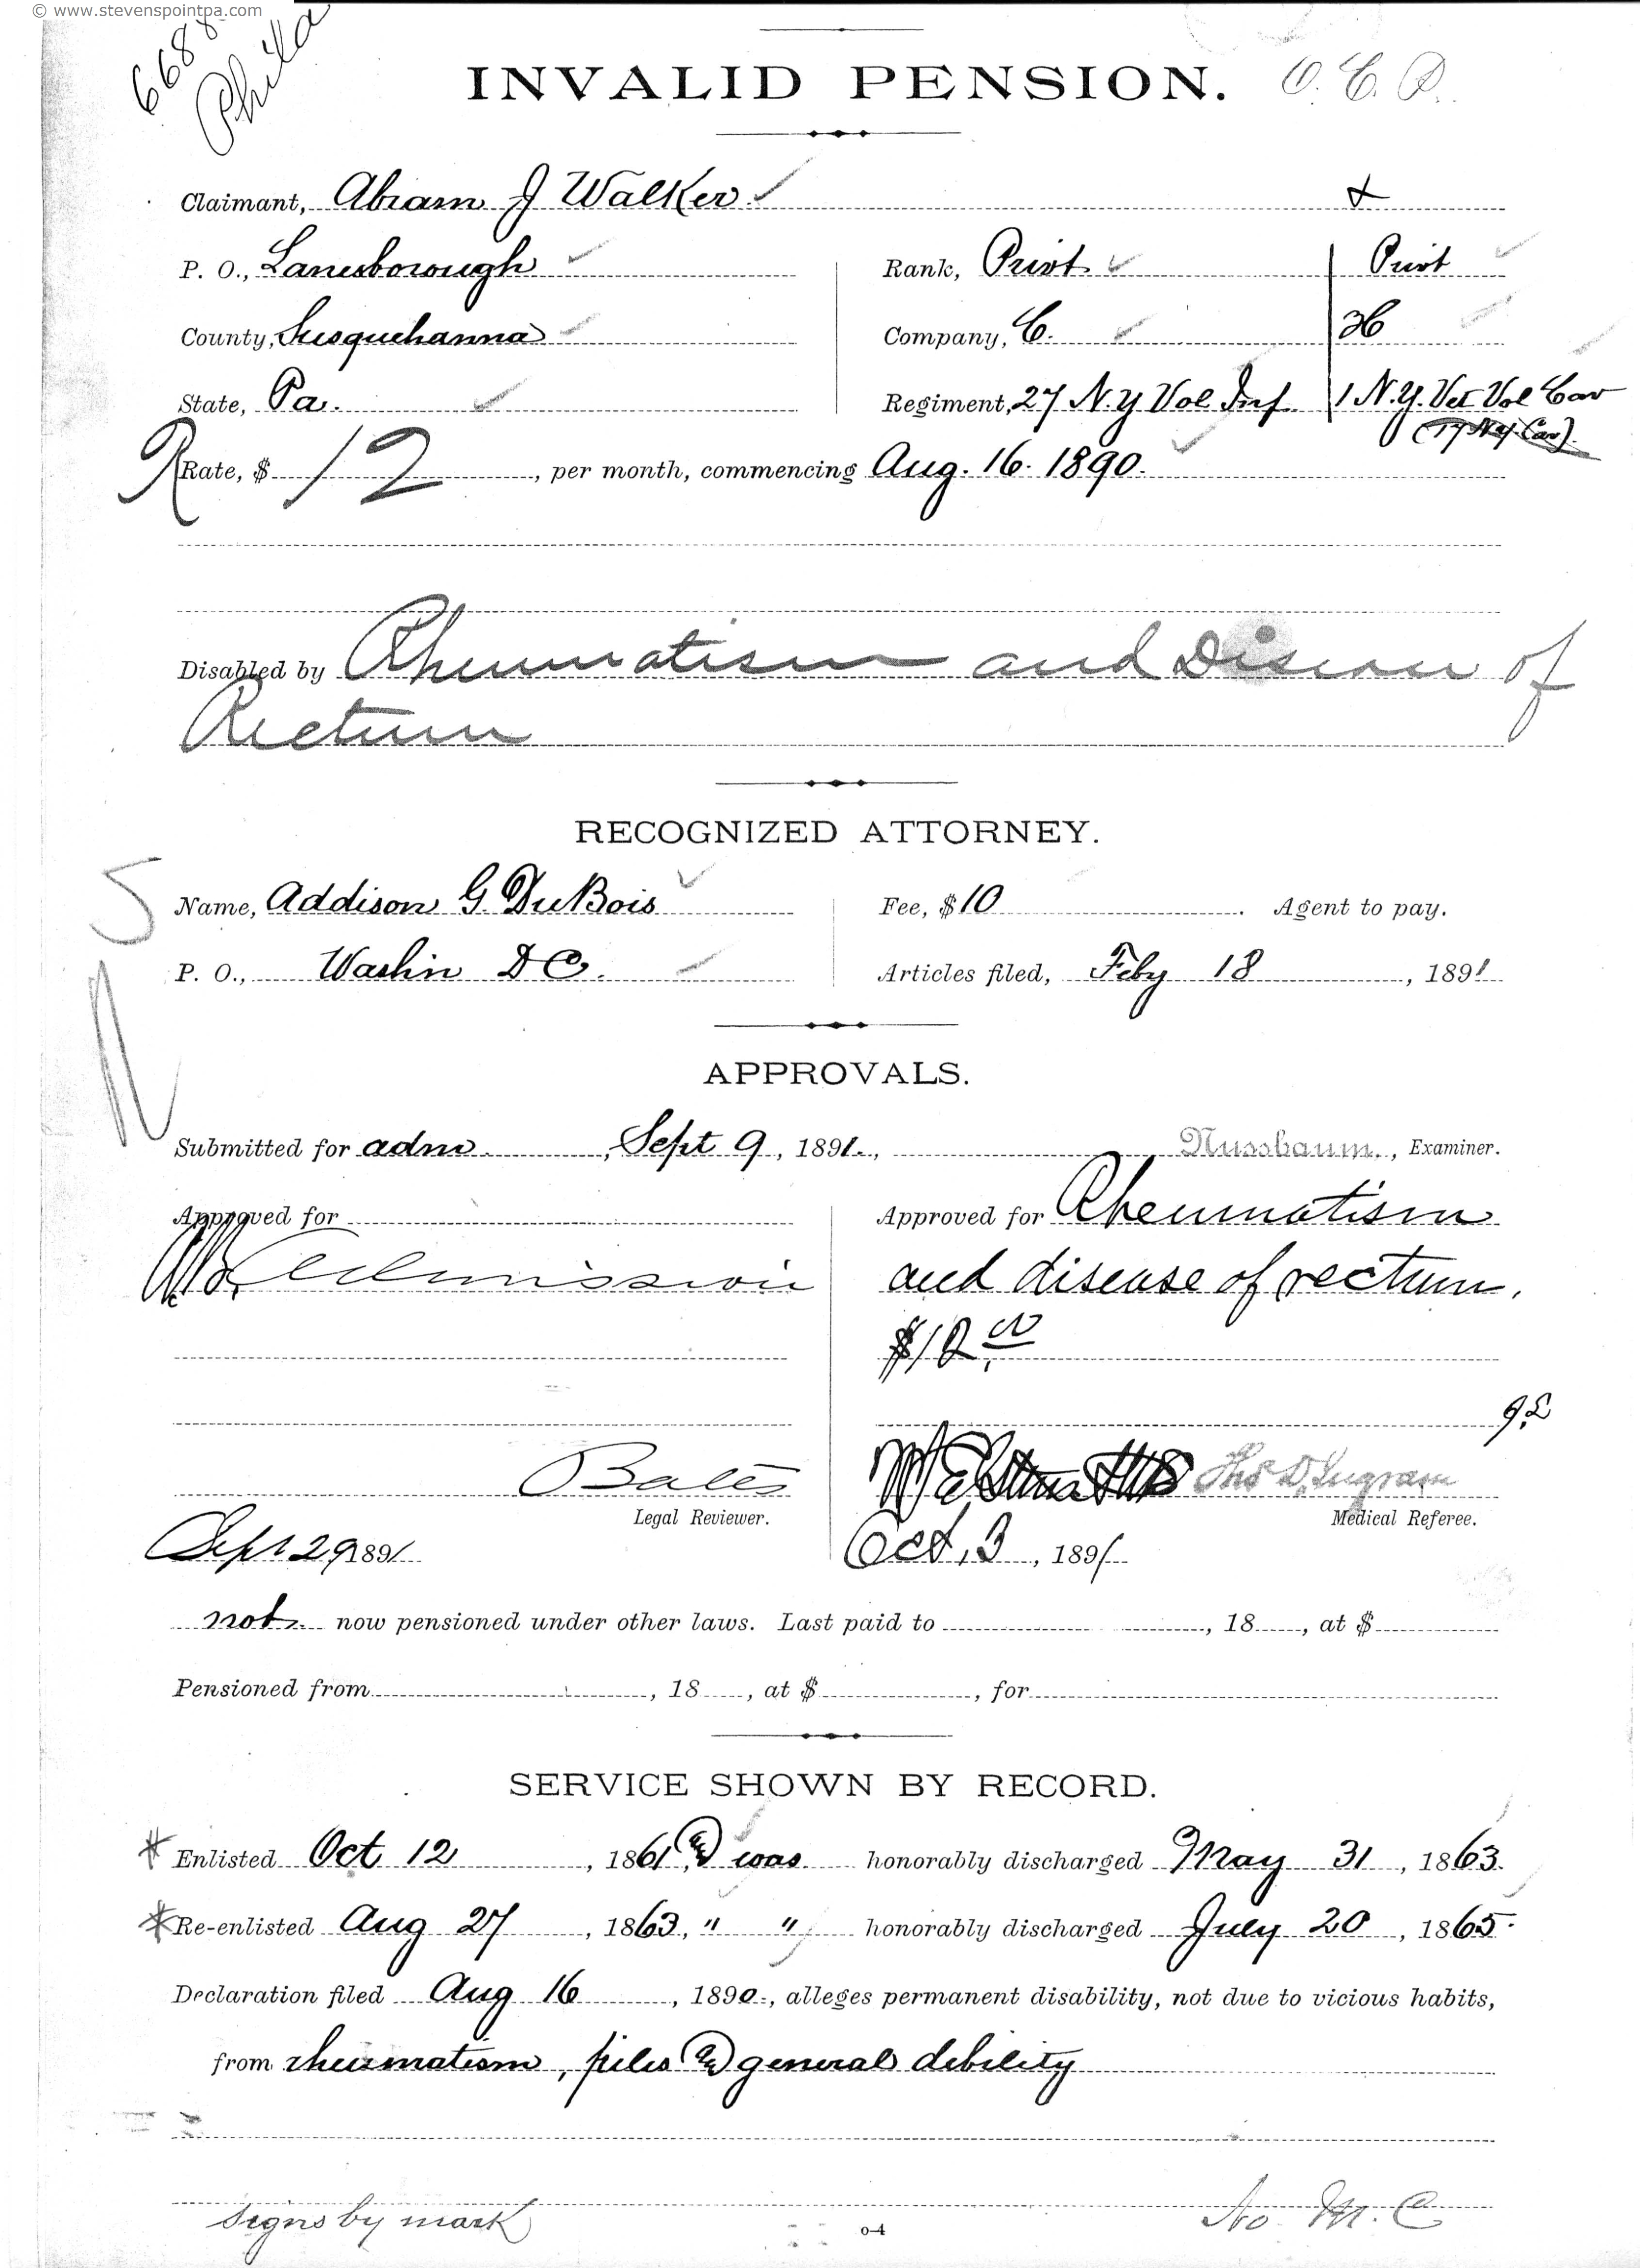 © www.stevenspointpa.com
668
Phila
INVALID PENSION. O. C. P.
Claimant, Abram J Walker &
P. O., Lanesborough Rank, Privt Privt
County, Susquehanna Company, C. H
State, Pa. Regiment, 27 N.Y Vol Inf 1 N.Y. Vet Vol Cav
(17 N.Y. Cav).
Rate, $ 12, per month, commencing Aug. 16. 1890.
Disabled by Rheumatism and Disease of
Rectum
RECOGNIZED ATTORNEY.
Name, Addison G. DuBois Fee, $10. Agent to pay.
P. O., Washn D C. Articles filed, Feby 18, 1891
APPROVALS.
Submitted for adm., Sept 9, 1891., Nussbaum, Examiner.
Approved for Approved for Rheumatism
Admission and disease of rectum.
$12.00
Bates Thos D. Ingram
Legal Reviewer. Medical Referee.
Sept 29 1891 Oct, 3, 1891
not now pensioned under other laws. Last paid to , 18 , at $
Pensioned from , 18 , at $ , for
SERVICE SHOWN BY RECORD.
* Enlisted Oct 12, 1861, & was honorably discharged May 31, 1863.
* Re-enlisted Aug 27, 1863, " " honorably discharged July 20, 1865.
Declaration filed Aug 16, 1890., alleges permanent disability, not due to vicious habits,
from rheumatism, piles & general debility
signs by mark No M. C
0-4